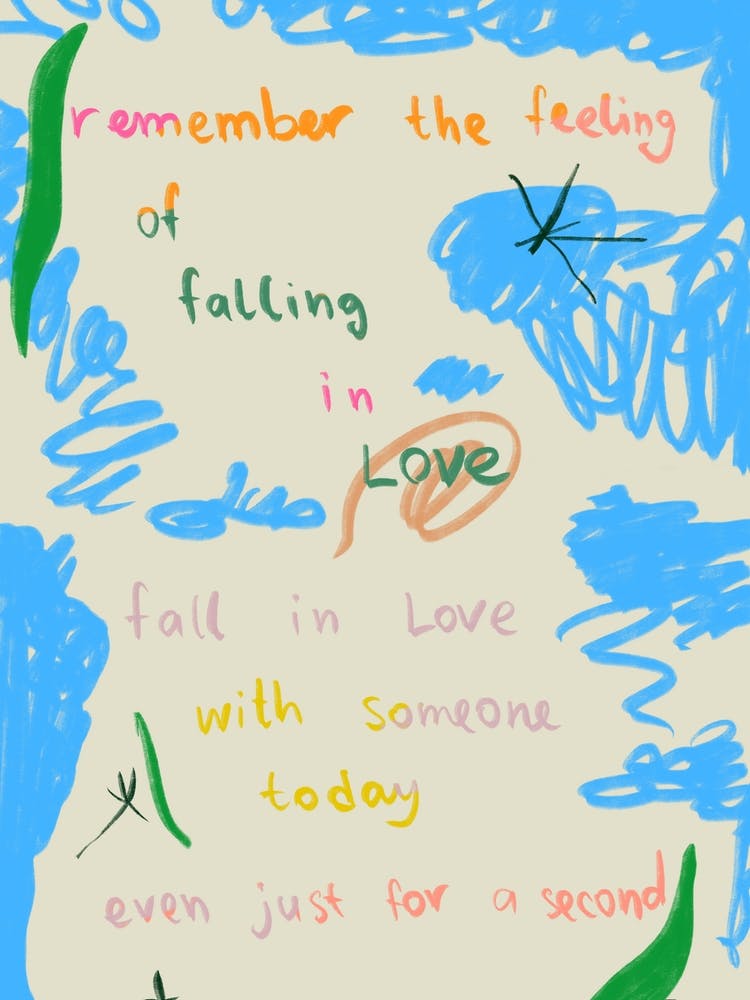 remember the feeling
of
falling
in
Love
fall in Love
with someone
today
even just for a second